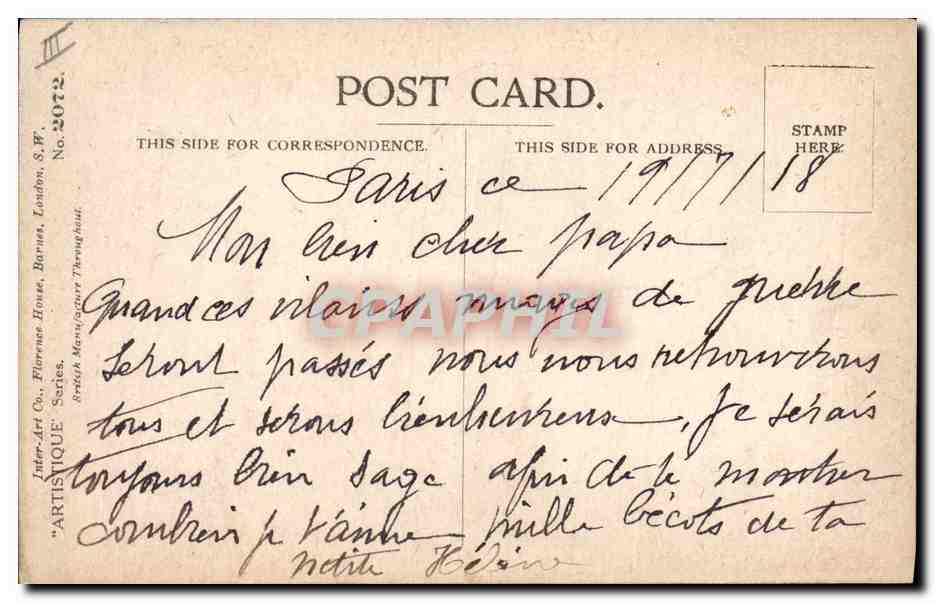 III
POST CARD.
THIS SIDE FOR CORRESPONDENCE.
THIS SIDE FOR ADDRESS
STAMP
HERE.
Paris ce 19/7/18
Mon bien cher papa
Quand ces vilains nuages de guerre
seront passés nous nous retrouverons
tous et serons bienheureux, je serais
toujours bien sage afin de te montrer
combien je t'aime mille bécots de ta
petite Hélène
Inter-Art Co., Florence House, Barnes, London, S.W.
"ARTISTIQUE" Series. No. 2072.
British Manufacture Throughout.
CPAPHIL